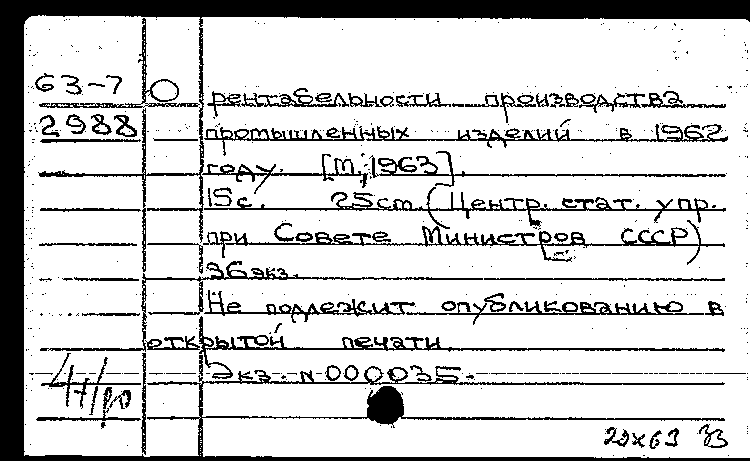 63-7 О рентабельности производства
2988 промышленных изделий в 1962
году. [М., 1963].
15с. 25см. (Центр. стат. упр.
при Совете Министров СССР)
36экз.
Не подлежит опубликованию в
открытой печати.
Экз. N 000035.
29х63